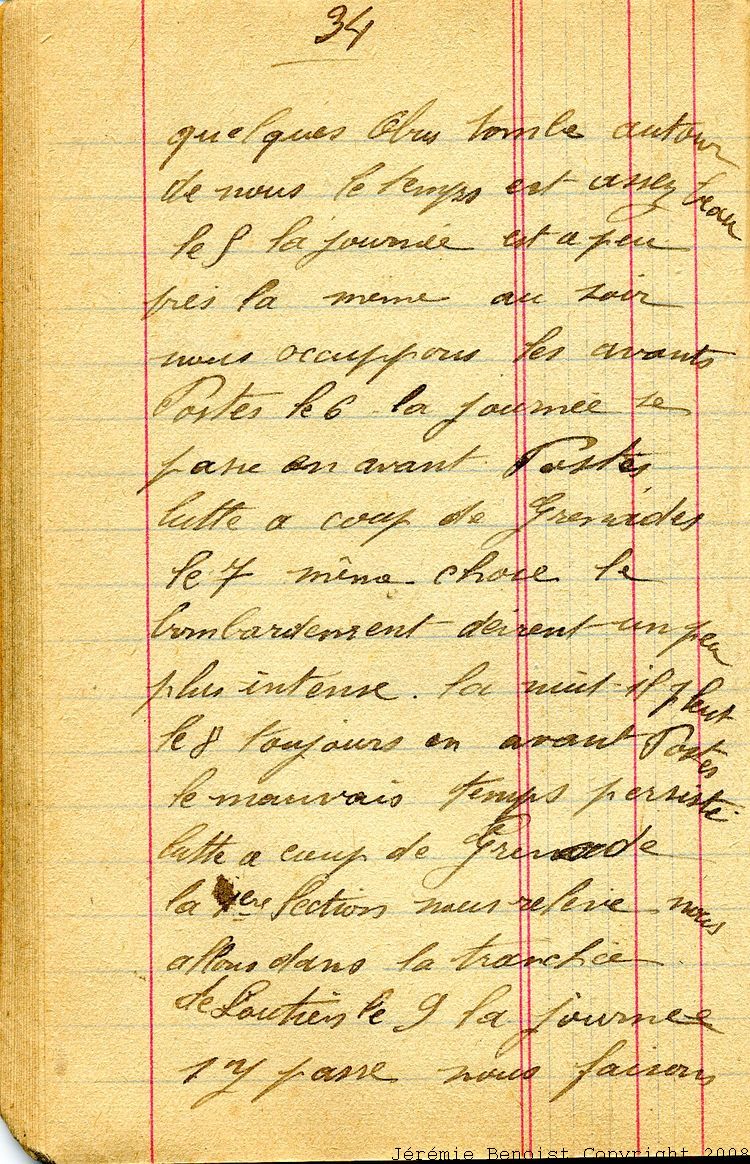 34
quelques Obus tombe autour
de nous le temps est assez beau
le 5 la journée est a peu
près la meme au soir
nous occuppons les avants
Postes le 6 la journée se
passe en avant Postes
lutte a coup de Grenades
le 7 même chose le
bombardement devient un peu
plus intense. la nuit il pleut
le 8 toujours en avant Postes
le mauvais temps persiste
lutte a coup de Grenade
la 1ere Section nous relève nous
allons dans la tranchée
de Soutien le 9 la journée
s'y passe nous faisons
Jérémie Benoist Copyright 2008